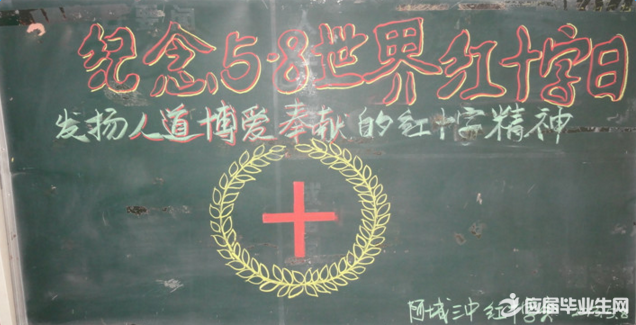 纪念5·8世界红十字日
发扬人道博爱奉献的红十字精神
阿城三中红十字会
应届毕业生网